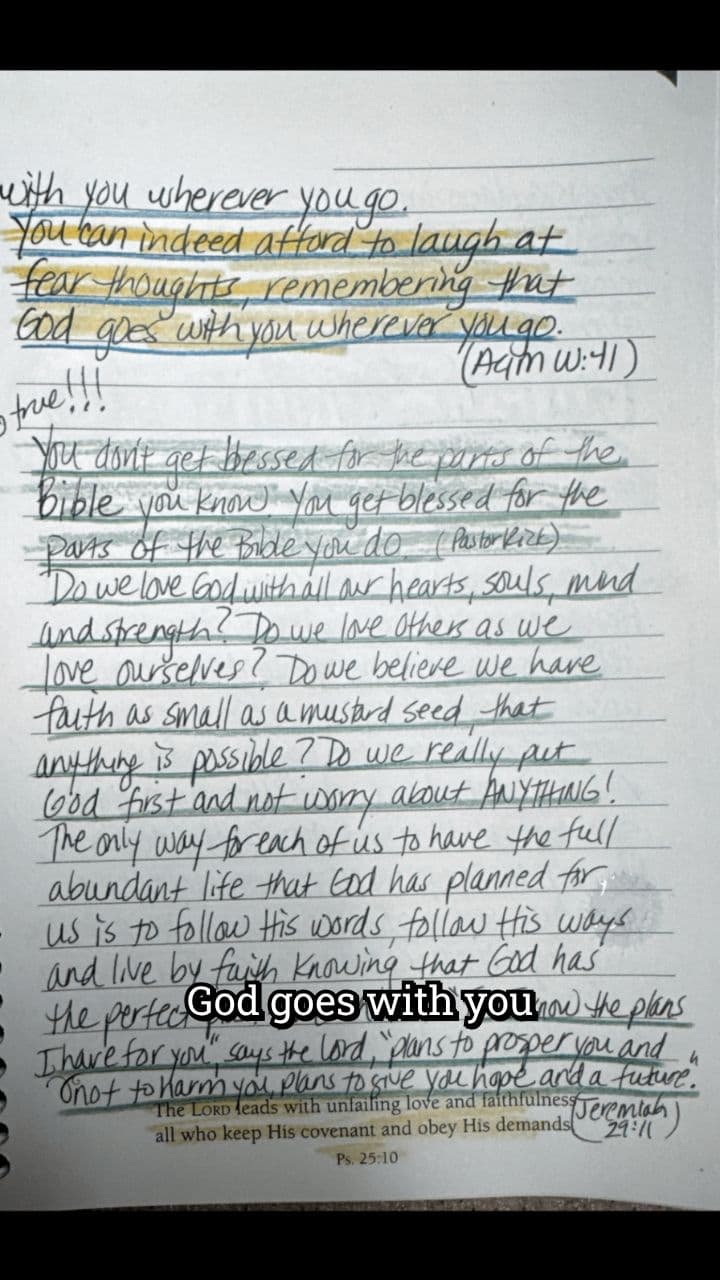 with you wherever you go.
You can indeed afford to laugh at
fear thoughts, remembering that
God goes with you wherever you go.
(Acim W:41)
true!!!
You don't get blessed for the parts of the
Bible you know. You get blessed for the
parts of the Bible you do. (Pastor Rick)
Do we love God with all our hearts, souls, mind
and strength? Do we love others as we
love ourselves? Do we believe we have
faith as small as a mustard seed, that
anything is possible? Do we really put
God first and not worry about ANYTHING!
The only way for each of us to have the full
abundant life that God has planned for
us is to follow His words, follow His ways
and live by faith knowing that God has
the perfect now the plans
God goes with you
I have for you", says the Lord, "plans to prosper you and
not to harm you, plans to give you hope and a future."
The LORD leads with unfailing love and faithfulness
all who keep His covenant and obey His demands
(Jeremiah
29:11)
Ps. 25:10